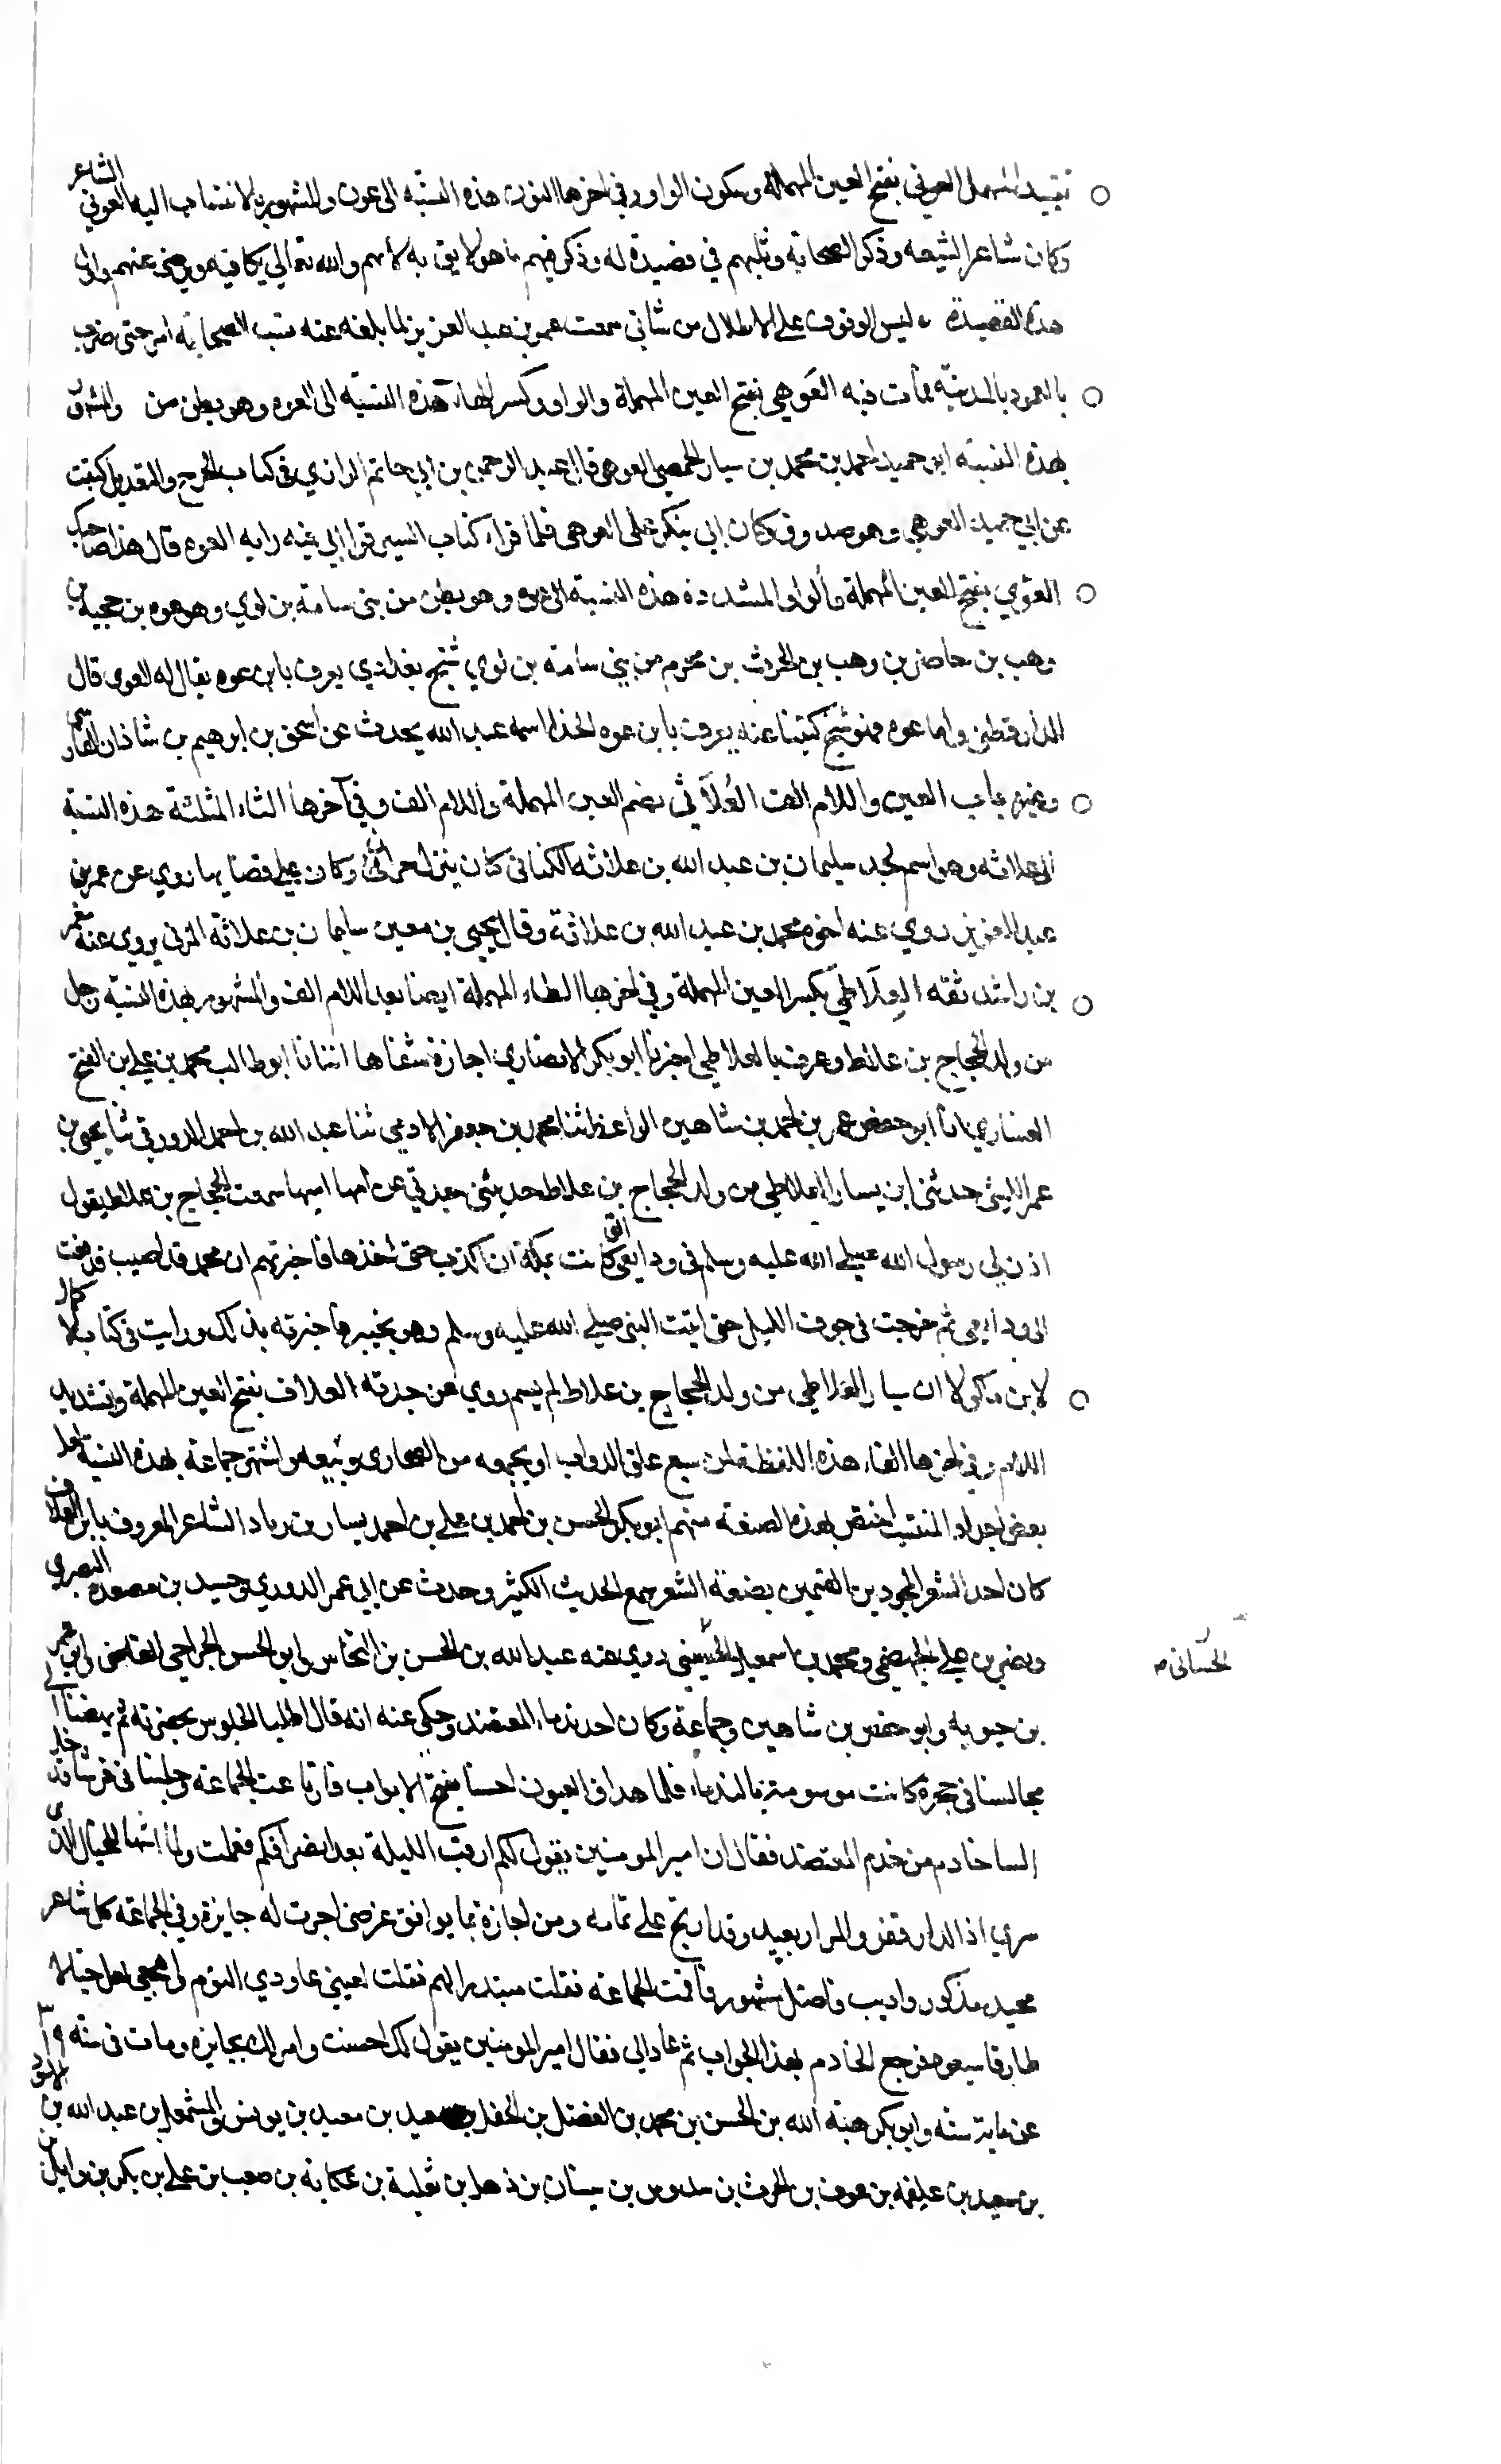 العوني بفتح العين المهملة وسكون الواو وفي اخرها النون هذه النسبة الى عون والمشهور بالانتساب اليه العوني الشاعر
وكان شاعر الشيعه وذكر الصحابة وثلبهم في قصيدة له وذكر فيهم ما هو لا يق به لا بهم والله تعالى يكافيه ويرضى عنهم واول
هذه القصيدة ليس الوقوف على الاطلال من شاني سمعت عمر بن عبد العزيز لما بلغه عنه سب الصحابة امر حتى ضرب
بالعمود بالمدينة فمات فيه العَوهي بفتح العين المهملة والواو وكسر الهاء هذه النسبة الى العوه وهو بطن من والمشهور
بهذه النسبة ابو حميد احمد بن محمد بن سيار الحمصي العوهي قال عبد الرحمن بن ابي حاتم الرازي في كتاب الجرح والتعديل كتبت
عن ابي حميد العوهي وهو صدوق وكان ابي ينكر على العوهي فلما قرا كتاب السير قرا ابي فيه راية العوه قال هذا صاحبك
العوّي بفتح العين المهملة والواو المشددة هذه النسبة الى عوه وهو بطن من بني سامة بن لوي وهو عوه بن حجية بن
وهب بن حاضر بن وهب بن الحرث بن مخزم من بني سامة بن لوي شيخ بغدادي يعرف بابن عوه يقال له العوي قال
الدارقطني واما عوه فهو شيخ كتبنا عنه يعرف بابن عوه الحذا اسمه عبد الله يحدث عن اسحق بن ابرهيم بن شاذان الفارسي
وغيره باب العين واللام الف العُلَاثي بضم العين المهملة واللام الف وفي آخرها الثاء المثلثة هذه النسبة
الى علاثه وهو اسم لجد سليمان بن عبد الله بن علاثه الكناني كان ينزل حران وكان على قضايها روى عن عمر بن
عبد العزيز روى عنه اخوه محمد بن عبد الله بن علاثة وقال يحيى بن معين سليمان بن علاثة يروى عنه معمر
بن راشد ثقه العِلَاطي بكسر العين المهملة وفي اخرها الطاء المهملة ايضا بعد اللام الف والمشهور بهذه النسبة رجل
من ولد الحجاج بن علاط وعرف بالعلاطي اخبرنا ابو بكر الانصاري اجازة شفاها انبانا ابو طالب محمد بن علي بن الفتح
العشاري انا ابو حفص عمر بن احمد بن شاهين الواعظ ثنا محمد بن جعفر الادمي ثنا عبد الله بن احمد الدورقي ثنا يحيى بن
عمر الليثي حدثني ابن يسار العلاطي من ولد الحجاج بن علاط حدثتني جدتي عن امها ابيها سمعت الحجاج بن علاط يقول
اذن لي رسول الله صلى الله عليه وسلم في ودايعي التي كانت بمكة ان اكذب حتى اخذها فاخبرتهم ان محمد قد اصيب فدفعت
الى ودايعي ثم خرجت في جوف الليل حتى اتيت النبي صلى الله عليه وسلم وهو بخيبر فاخبرته بذلك ورايت في كتاب الاكمال
لابن ماكولا ان سيار العلاطي من ولد الحجاج بن علاط لم يسم روى عن جدته العلاف بفتح العين المهملة وتشديد
اللام وفي اخرها الفاء هذه اللفظة لمن يبيع علف الدواب او يجمعه من الصحاري ويبيعه واشتهر جماعة بهذه النسبة لعل
بعض اجداد المنتسب اختص بهذه الصنعة منهم ابو بكر الحسن بن احمد بن علي بن احمد بن يسار بن زياد الشاعر المعروف بابن العلاف
كان احد الشعرا المجودين القيمين بصنعة الشعر سمع الحديث الكثير وحدث عن ابي عمر الدوري وحميد بن مسعدة البصري
ونصر بن علي الجهضمي ومحمد بن اسمعيل الحسيني روى عنه عبد الله بن الحسن بن النخاس وابو الحسن الجراحي القاضي وابو عمر
الحسانى صـ
بن حيويه وابو حفص بن شاهين وجماعة وكان احد ندماء المعتضد وحكى عنه انه قال اطلبنا الجلوس بحضرته ثم نهضنا الى
مجالسنا في حجرة كانت موسومة بالندماء فلما هدات العيون احسنا بفتح الابواب فارتاعت الجماعة وجلسنا في فرشنا فدخل
الينا خادم من خدم المعتضد فقال ان امير المومنين يقول لكم ارقت الليلة بعد انصرافكم فعملت ولما انتبهنا للخيال الذي
سرى اذا الدار قفر والمزار بعيد وقد ارتج على تمامه ومن اجازه بما يوافق غرضي اجزت له جايزة وفي الجماعة كل شاعر
مجيد مذكور واديب وفاضل مشهور فافحمت الجماعه فقلت مبتدرا لهم فقلت لعيني عاودي النوم واهجعي لعل خيالا
طارقا سيعود فرجع الخادم بهذا الجواب ثم عاد الي فقال امير المومنين يقول لك احسنت وامر لك بجايزه ومات في سنة ٣١٩
عن ماية سنه وابو بكر هبة الله بن الحسن بن محمد بن الفضل بن سعيد بن معبد بن يونس بن المشمعل بن عبد الله بن
بن سعيد بن علقمه بن عوف بن الحرث بن سدوس بن سنان بن ذهل بن ثعلبة بن عكابة بن صعب بن علي بن بكر بن وايل بن